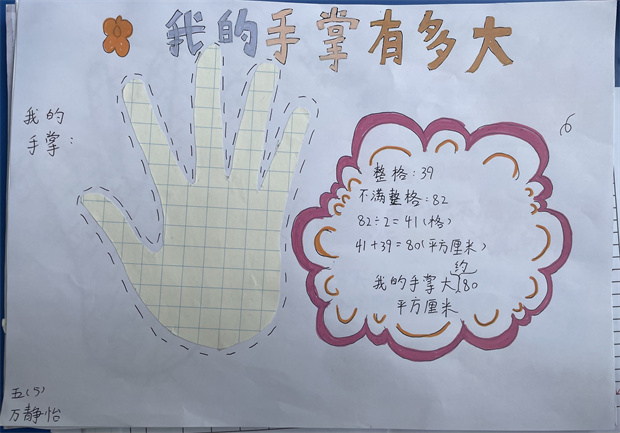 我的手掌有多大
我的
手掌：
整格：39
不满整格：82
82÷2=41（格）
41+39=80（平方厘米）
约
我的手掌大80
平方厘米
五（5）
万静怡